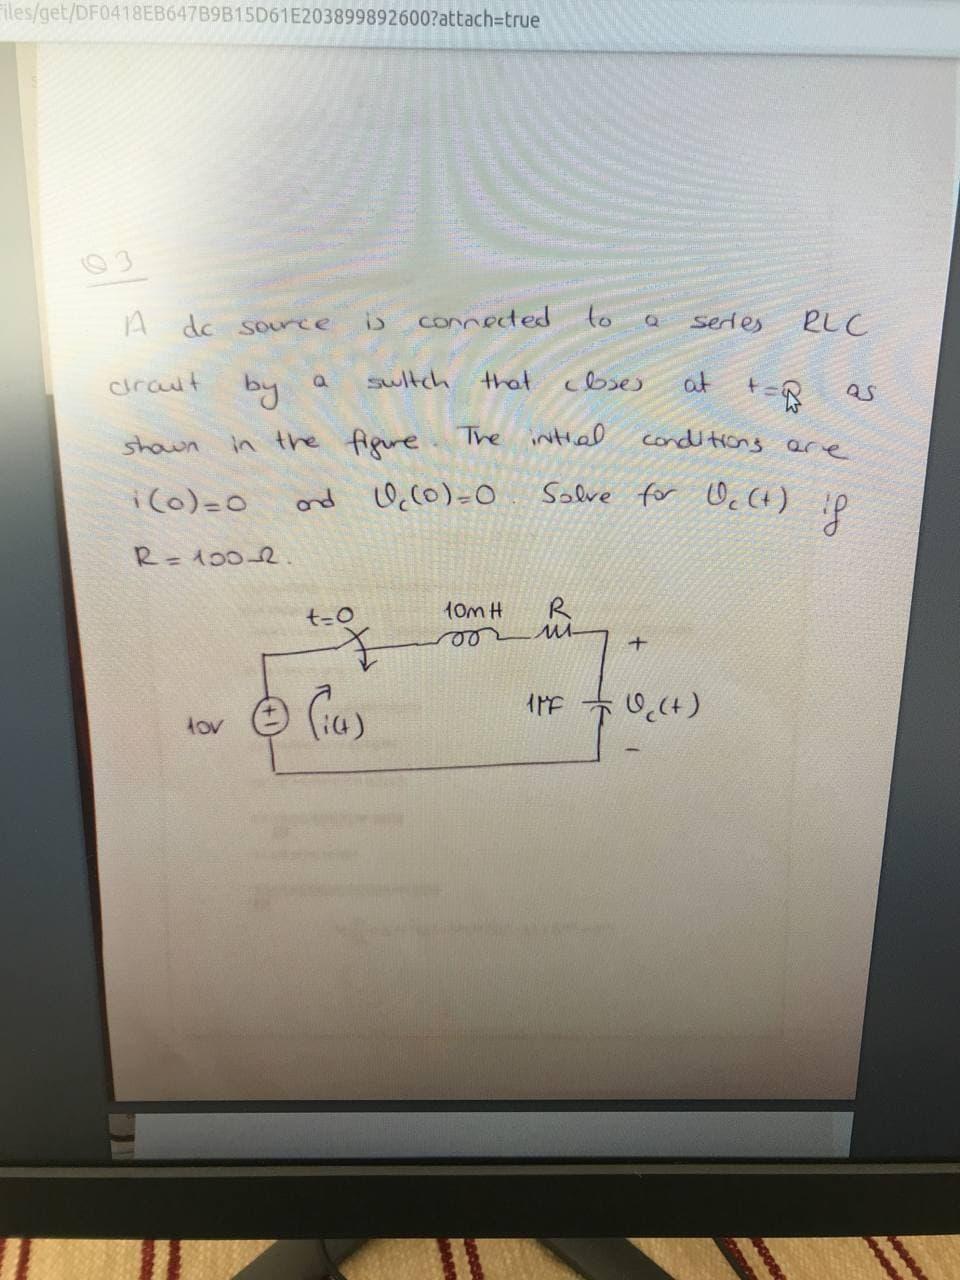 iles/get/DF0418EB647B9B15D61E203899892600?attach=true
Q3
A dc source is connected to a series RLC
circuit by a switch that closes at t=0 as
shown in the figure. The initial conditions are
i(0)=0 and Vc(0)=0. Solve for Vc(t) if
R=100Ω.
t=0 10mH R
+
10V + - i(t) 1µF Vc(t)
-